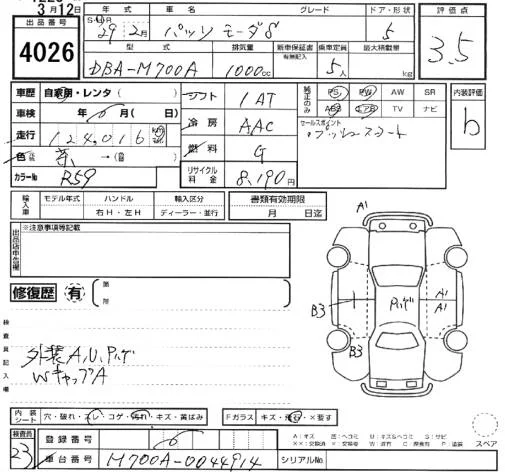 3月12日
出品番号
4026
年式 車名 グレード ドア・形状
29 2月 パッソ モーダS 5
型式 排気量 新車保証書 有無記入 乗車定員 最大積載量
DBA-M700A 1000cc 5人 kg
評価点
3.5
車歴 自家用・レンタ( ) シフト 1AT
車検 年 月( 日) 冷房 AAC
走行 124,016 燃料 G
色 茶 →( ) リサイクル料金 8,190円
カラーNo R59
純正のみ PS PW AW SR
ABS エアB TV ナビ
セールスポイント
プッシュスタート
内装評価
b
輸入車 モデル年式 ハンドル 輸入区分 書類有効期限
右H・左H ディーラー・並行 月 日迄
出品店申告欄 ※注意事項等記載
修復歴 有
検査員記入欄
外装A,U,Pハゲ
WキャップA
A1
B3
Pハゲ
A1
A1
B3
内装シート 穴・破れ・スレ・コゲ・汚れ・キズ・黄ばみ
Fガラス キズ・飛石・×要す
検査員
23
登録番号
車台番号 M700A-0044914 シリアルNo.
A:キズ 凹:ヘコミ U:キズ&ヘコミ S:サビ
スペア